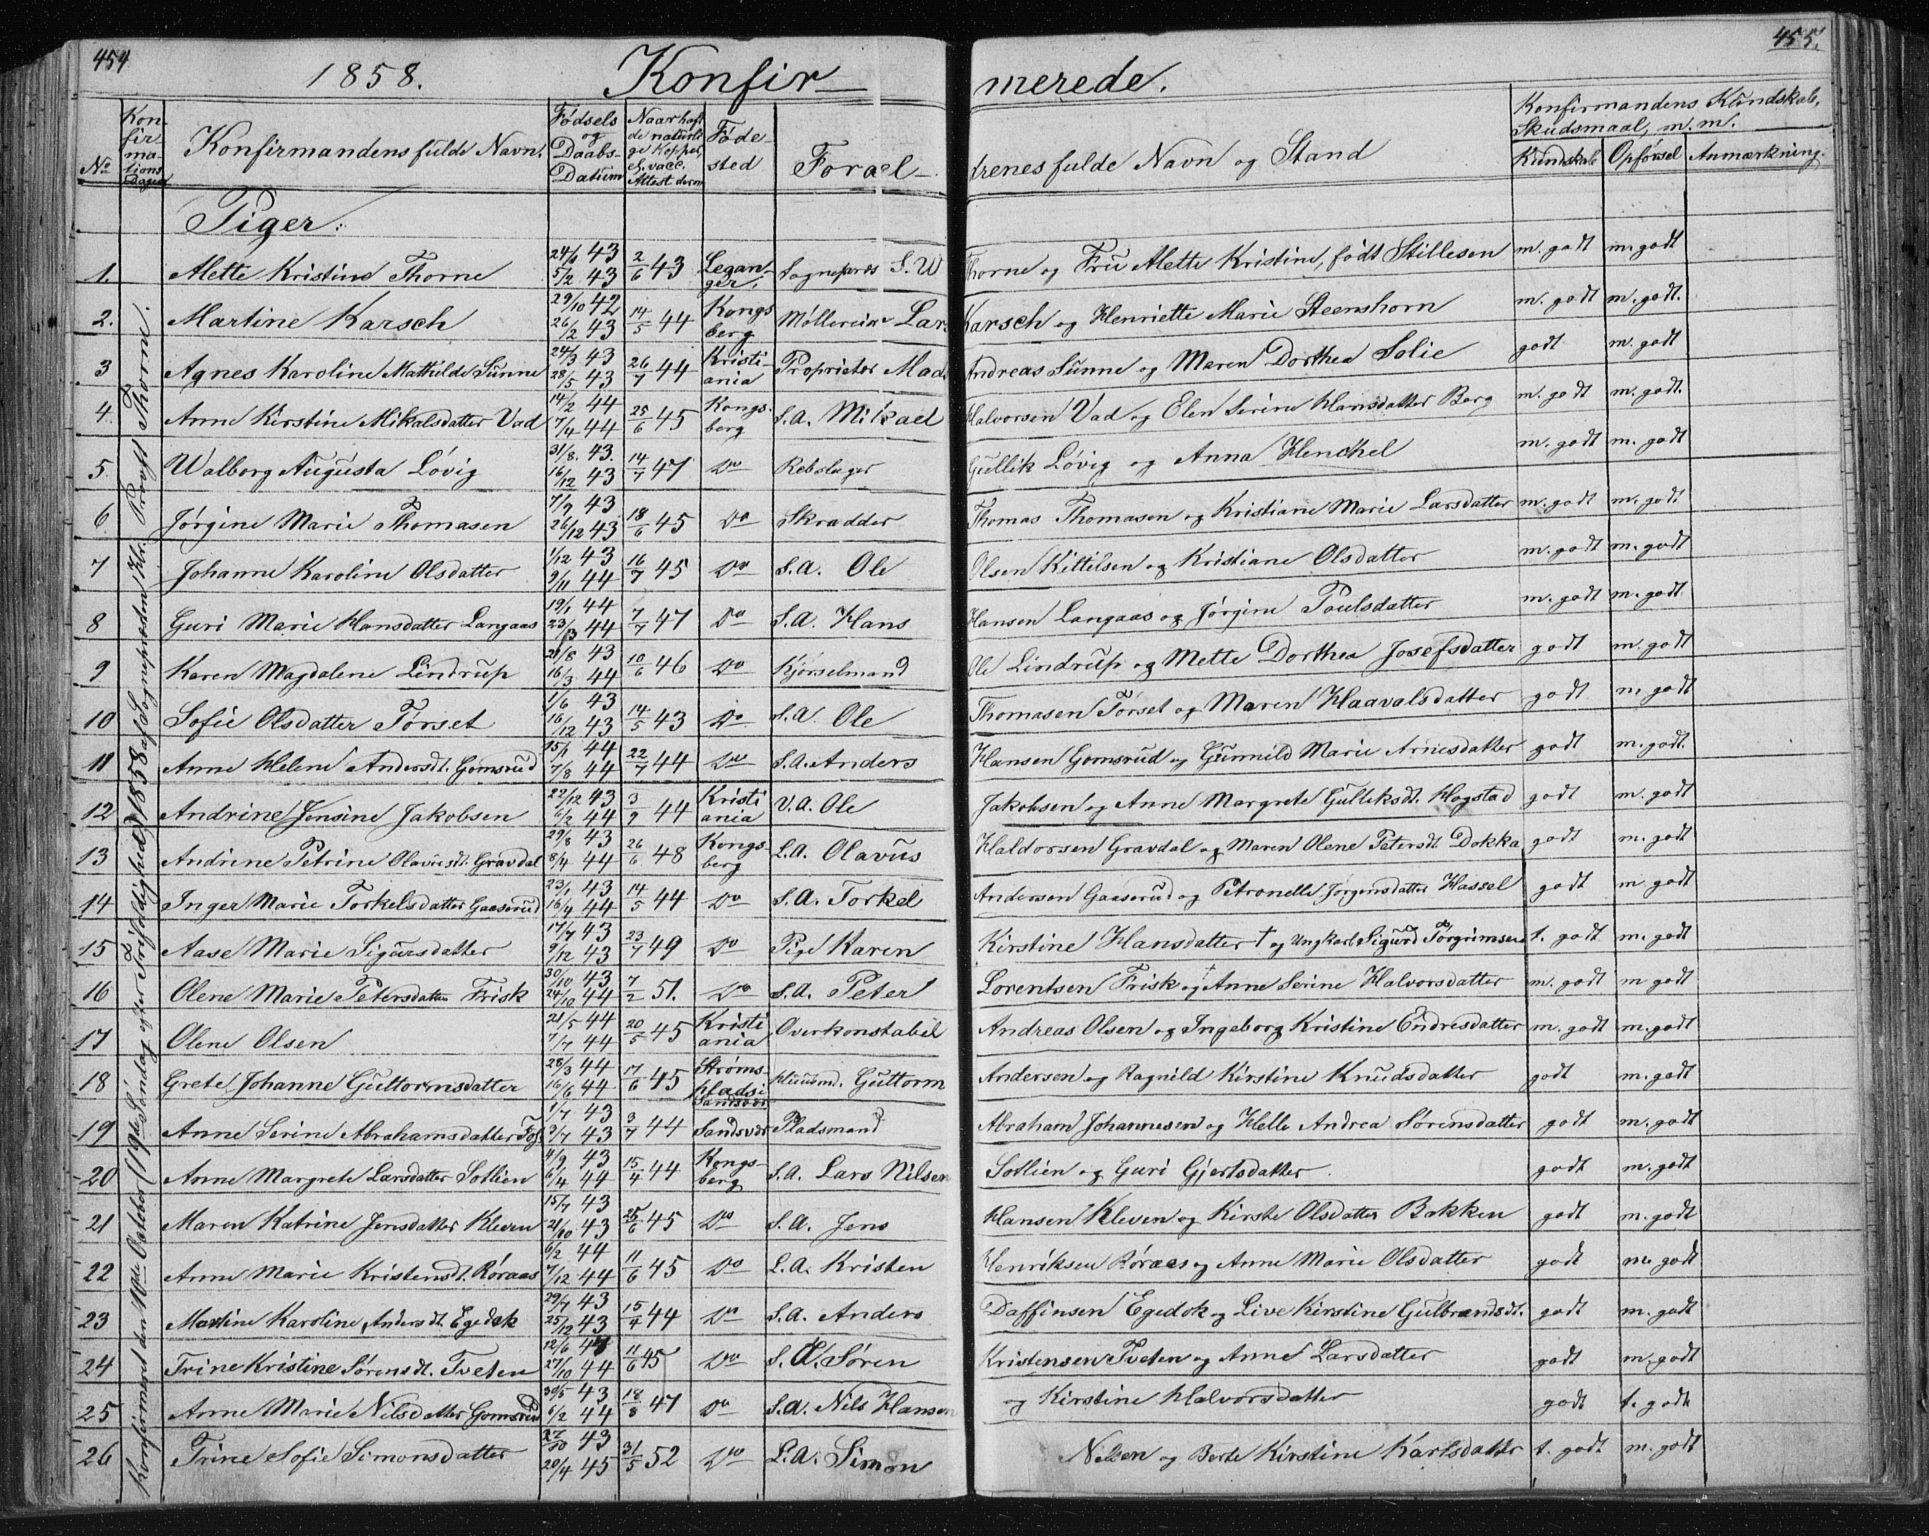 454
455.
1858. Konfirmerede.
No
Konfirmations Dagen
Konfirmandens fulde Navn.
Fødsels og Daabs-Datum
Naar hafde naturlige Kopper, el. vacc. Attest derom
Fødested
Forældrenes fulde Navn og Stand
Konfirmandens Kundskab, Skudsmaal, m. m.
Kundskab Opførsel Anmærkning.
Konfirmeret den 10de Oktober (19de Søndag efter Trifoldighed) 1858 af Sognepræsten Hr. Provst Thorne.
Piger:
1. Alette Kristine Thorne 24/1 43 5/2 43 2/6 43 Leganger, Sognepræs S. W Thorne og Fru Alette Kristine, født Stillesen m. godt m. godt
2. Martine Karsch 29/10 42 26/2 43 14/5 44 Kongsberg Møllereier Lars Karsch og Henriette Marie Steenshorn m. godt m. godt.
3 Agnes Karoline Mathilde Sunne 24/3 43 28/5 43 26/7 44 Kristiania Proprietær Mads Andreas Sunne og Maren Dorthea Solie godt m. godt
4. Anne Kirstine Mikalsdatter Vad 14/2 44 7/4 44 25/6 45 Kongsberg S.A. Mikael Halvorsen Vad og Elen Serine Hansdatter Berg m. godt m. godt.
5. Walborg Augusta Løvig 31/8. 43. 16/12 43 14/7 47 Do Rebslager Gullik Løvig og Anna Henckel m. godt m. godt
6 Jørgine Marie Thomasen 7/9 43 26/12 43 18/6 45 Do Skrædder Thomas Thomasen og Kristiane Marie Larsdatter m. godt m. godt
7 Johanne Karoline Olsdatter 1/12 43 9/11 44 16/7 45 Do S.A. Ole Olsen Kittilsen og Kristiane Olsdatter m. godt m. godt
8 Guri Marie Hansdatter Langaas 19/1 44 23/3 44 7/7 47 Do S.A. Hans Hansen Langaas og Jørgine Poulsdatter m. godt m. godt
9 Karen Magdalene Lindrup 21/8 43 16/3 44 10/6 46 Do Kjørselmand Ole Lindrup og Mette Dorthea Josefsdatter godt m. godt
10 Sofie Olsdatter Tørset 1/6 43 16/12 43 14/5 43 Do S.A. Ole Thomasen Tørset og Maren Haavalsdatter godt m godt
11 Anne Helene Andersdt. Gomsrud 15/1 44 7/8 44 22/7 44 Do S.A. Anders Hansen Gomsrud og Gunnild Marie Arnesdatter godt m. godt.
12 Andrine Jensine Jakobsen 22/12 43 6/2 44 3/9 44 Kristiania V.A. Ole Jakobsen og Anne Margrete Gulliksdt. Hogstad godt m. godt
13 Andrine Petrine Olavusdt. Gravdal 29/8 43 8/4 44 26/6 48 Kongsberg L.A. Olavus Haldorsen Gravdal og Maren Olene Petersdt. Dokka godt m. godt
14 Inger Marie Torkelsdatter Gaaserud 23/1 43 16/4 44 14/5 44 Do S.A. Torkel Andersen Gaaserud og Petronelle Jørgensdatter Hassel godt m godt
15 Aase Marie Sigursdatter 17/7 43 9/12 43 23/7 49 Do Pige Karen Kirstine Hansdatter † og Ungkarl Sigurd Torgrimsen t. godt m. godt
16 Olene Marie Petersdatter Frisk 30/10 43 24/10 44 7/2 51. Do S.A. Peter Lorentsen Frisk og † Anne Serine Halvorsdatter m. godt m godt
17 Olene Olsen 21/5 44 7/7 44 20/5 45 Kristiania Overkonstabel Andreas Olsen og Ingeborg Kristine Endresdatter m. godt m. godt
18 Grete Johanne Guttormsdatter 28/3 44 16/6 44 17/6 45 Strømspladsi Sandsvær Guttorm Andersen og Ragnild Kirstine Knudsdatter godt m. godt
19 Anne Serine Abrahamsdatter 1/7 43 9/7 43 3/7 44 Sandsvær Pladsmand Abraham Johannesen og Helle Andrea Sørensdatter godt m. godt
20 Anne Margrete Larsdatter Sotlien 4/9 43 6/4 44 15/4 44 Kongsberg S.A. Lars Nilsen Sotlien og Guri Gjertsdatter. godt m. godt
21 Maren Katrine Jensdatter Kleven 15/7 43 21/10 43 25/6 45 Do S.A. Jens Hansen Kleven og Kirste Olsdatter Bakken godt m. godt
22 Anne Marie Kristensdt. Røraas 6/2 44 7/12 44 11/6 45 Do L.A. Kristen Henriksen Røraas og Anne Marie Olsdatter godt m. godt
23 Martine Karoline Andersdt. Egedok 29/7 43 25/12 43 15/4 44 Do S.A. Anders Daffinsen Egedok og Live Kirstine Gulbrandsdt. godt m. godt
24 Trine Kristine Sørensdt. Tveten 12/6 43 27/10 44 11/6 45 Do S.A. Søren Kristensen Tveten og Anne Larsdatter godt m. godt
25 Anne Marie Nilsdatter Gomsrud 30/5 43 6/2 44 18/8 47 Do S.A. Nils Hansen og Kirstine Halvorsdatter godt t. godt
26 Trine Sofie Simonsdatter 27/10 43 20/4 45 31/5 52 Do L.A. Simon Nilsen og Berte Kirstine Karlsdatter t. godt m. godt